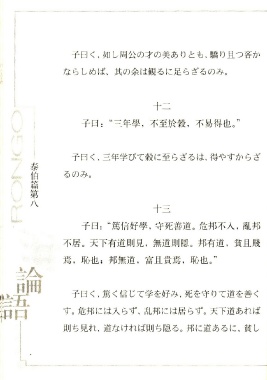 子曰く、如し周公の才の美ありとも、驕り且つ吝か
ならしめば、其の余は観るに足らざるのみ。
十二
子曰：“三年學，不至於穀，不易得也。”
子曰く、三年学びて穀に至らざるは、得やすからざ
るのみ。
十三
子曰：“篤信好學，守死善道。危邦不入，亂邦
不居。天下有道則見，無道則隠。邦有道，貧且賤
焉，恥也；邦無道，富且貴焉，恥也。”
子曰く、篤く信じて学を好み、死を守りて道を善く
す。危邦には入らず、乱邦には居らず。天下道あれば
則ち見れ、道なければ則ち隠る。邦に道あるに、貧し
RONGO
泰伯篇第八
論語